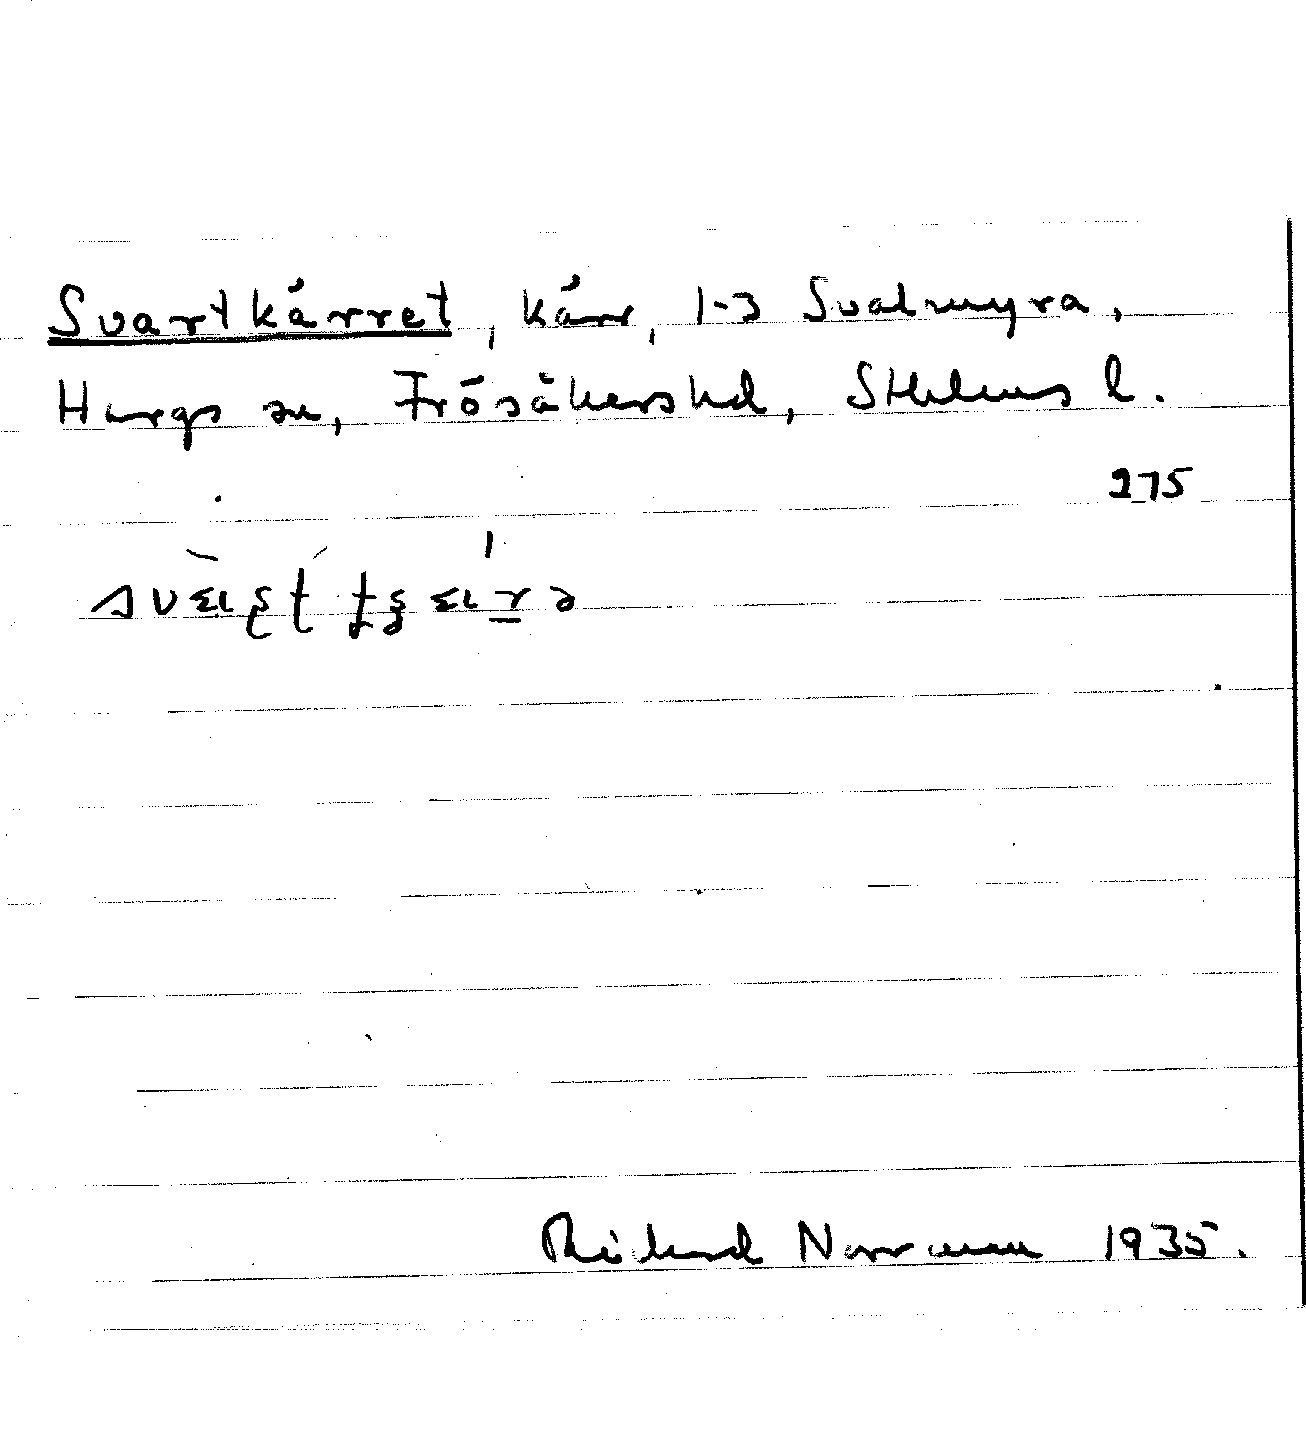 Svartkärret, kärr, 1-3 Svalmyra,
Hargs sn, Frösåkers hd, Sthlms l.
275
Rickard Norrman 1935.